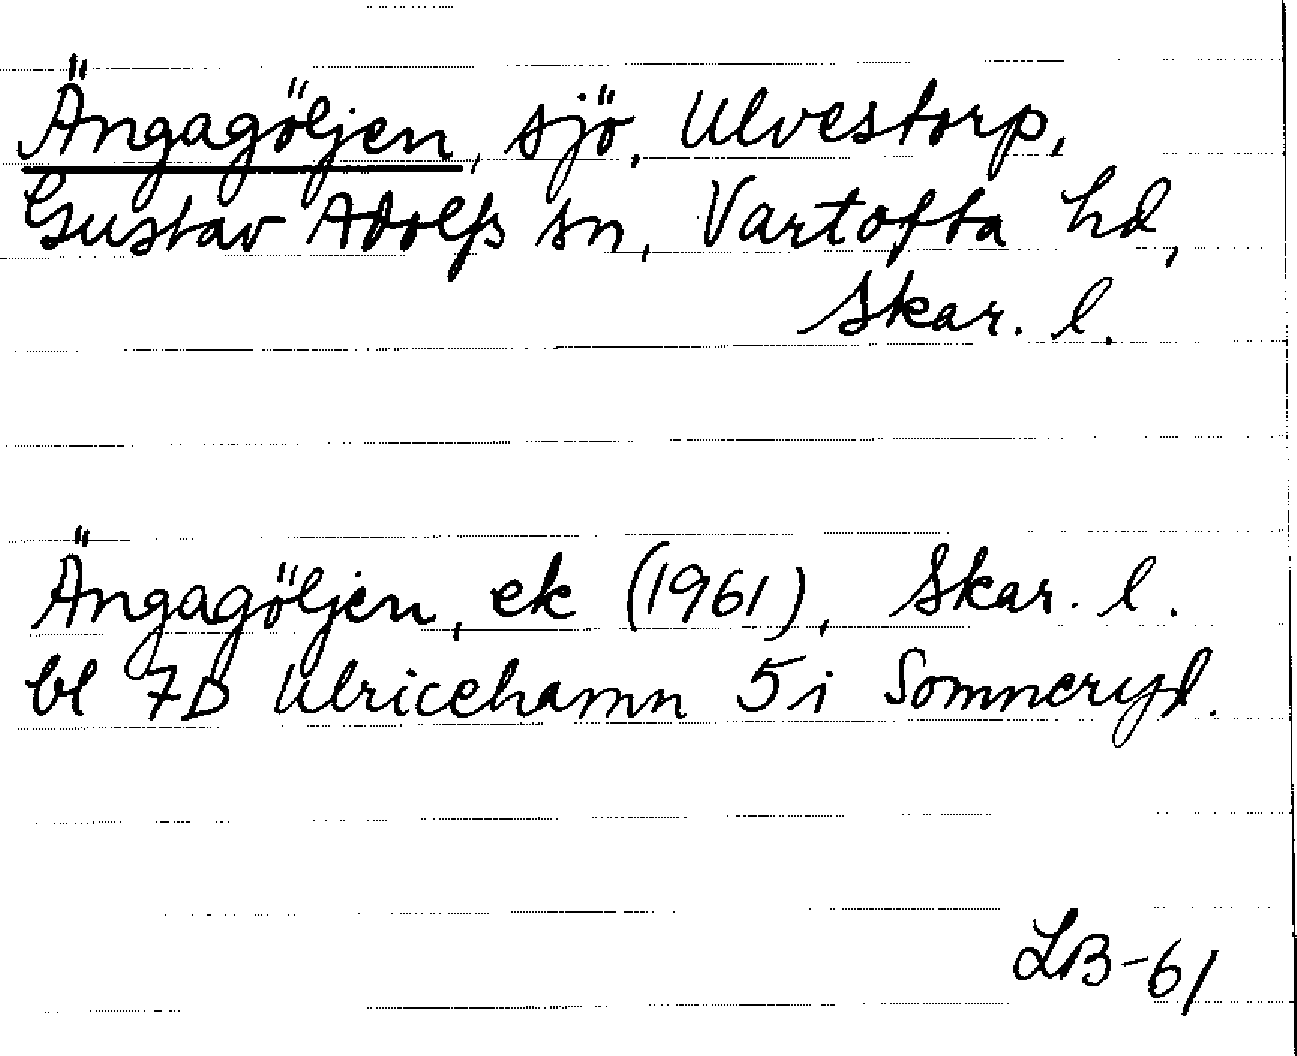 Ängagöljen, sjö, Ulvestorp,
Gustav Adolfs sn, Vartofta hd,
Skar. l.
Ängagöljen, ek (1961), Skar. l.
bl 7D Ulricehamn 5i Sommeryd.
LB-61